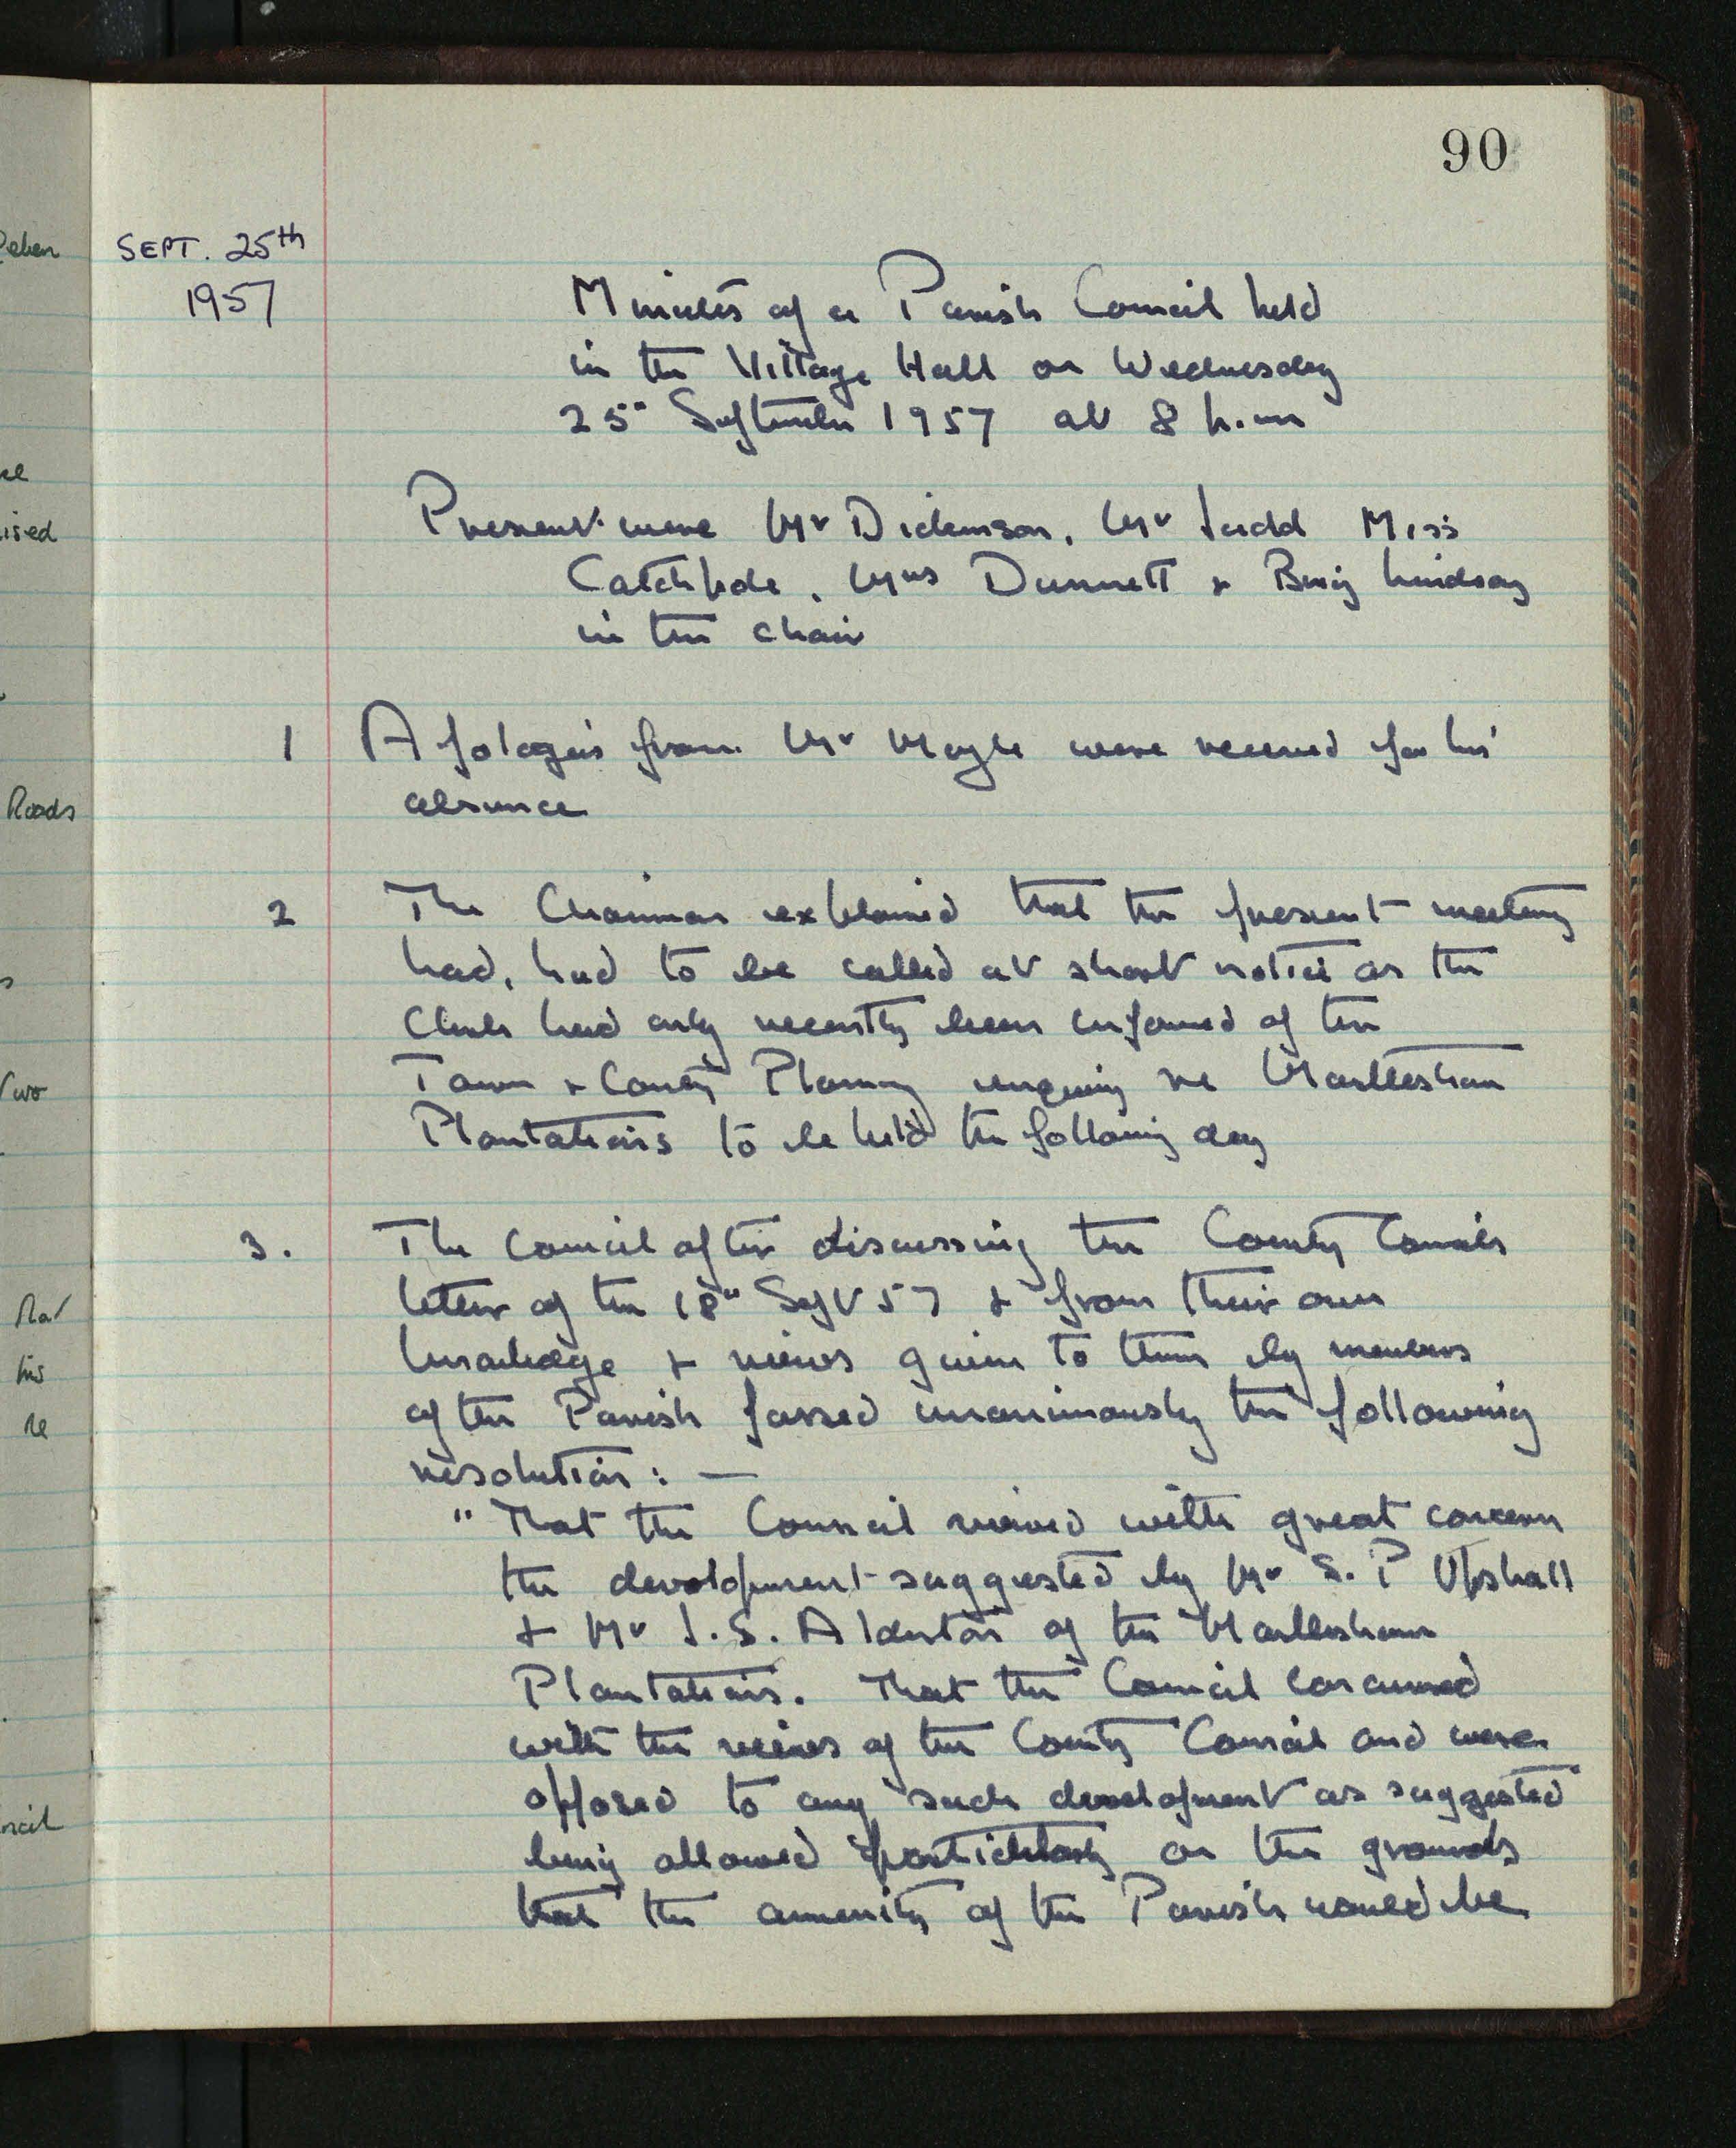 90
SEPT. 25th
1957
Minutes of a Parish Council held
in the Village Hall on Wednesday
25" September 1957 at 8 p.m
Present were Mr Dickenson, Mr Judd Miss
Catchpole, Mrs Dunnett + Brig Lindsay
in the chair
1 Apologies from Mr Mayle were received for his
absence
2 The Chairman explained that the present meeting
had, had to be called at short notice as the
Clerk had only recently been informed of the
Town + County Planning enquiry re Martlesham
Plantations to be held the following day
3. The Council after discussing the County Councils
letter of the 18" Sept 57 + from their own
knowledge + views given to them by members
of the Parish passed unanimously the following
resolution: —
" That the Council viewed with great concern
the development suggested by Mr S. P Upshall
+ Mr J. S. Alderton of the Martlesham
Plantations. That the Council concurred
with the views of the County Council and were
opposed to any such development as suggested
being allowed particularly on the grounds
that the amenity of the Parish would be
ised
Roads
Two
his
re